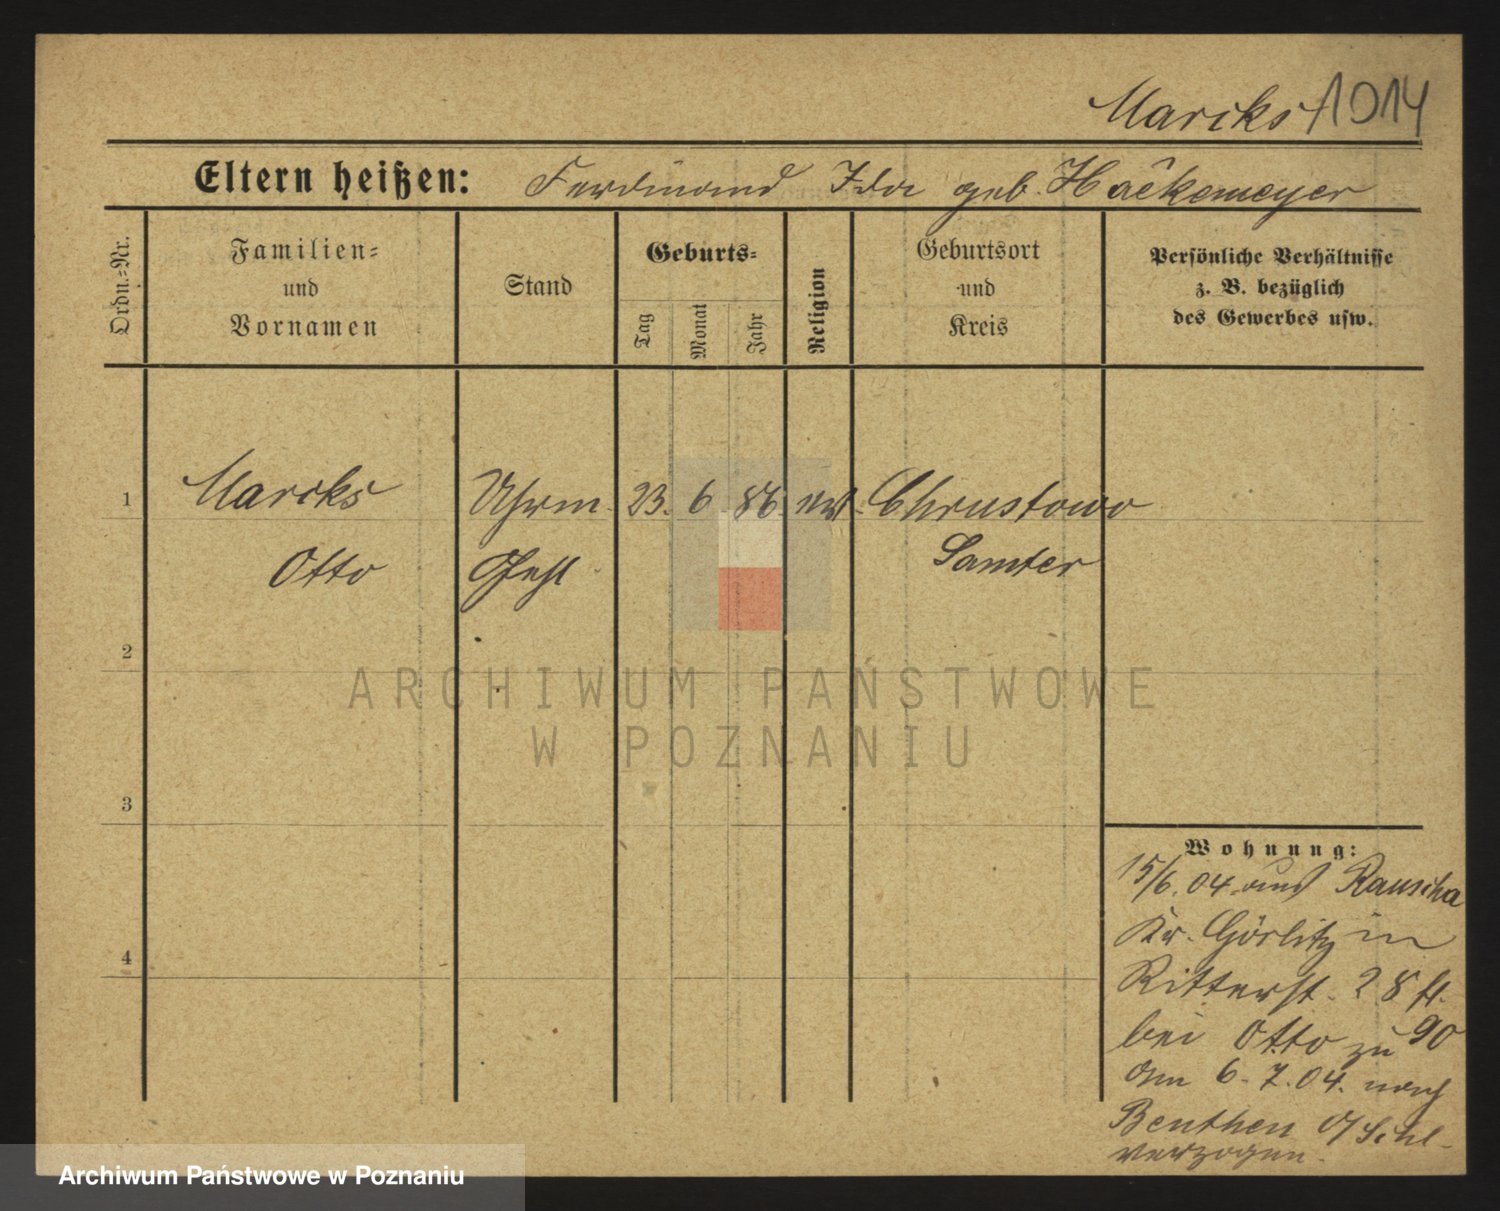 Marcks 1014
Eltern heißen: Ferdinand Ida geb. Hackemeyer
Ordn.=Nr.
Familien=
und
Vornamen
Stand
Geburts=
Tag
Monat
Jahr
Religion
Geburtsort
und
Kreis
Persönliche Verhältnisse
z. B. bezüglich
des Gewerbes usw.
1 Marcks Uhrm. 23. 6. 86. Chrustowo
Otto Samter
2
3
4
Wohnung:
15/6. 04 aus Rauscha
Kr. Görlitz in
Ritterst. 28
bei Otto zu 90
Am 6. 7. 04. nach
Beuthen O/Schl
verzogen.
ARCHIWUM PAŃSTWOWE
W POZNANIU
Archiwum Państwowe w Poznaniu